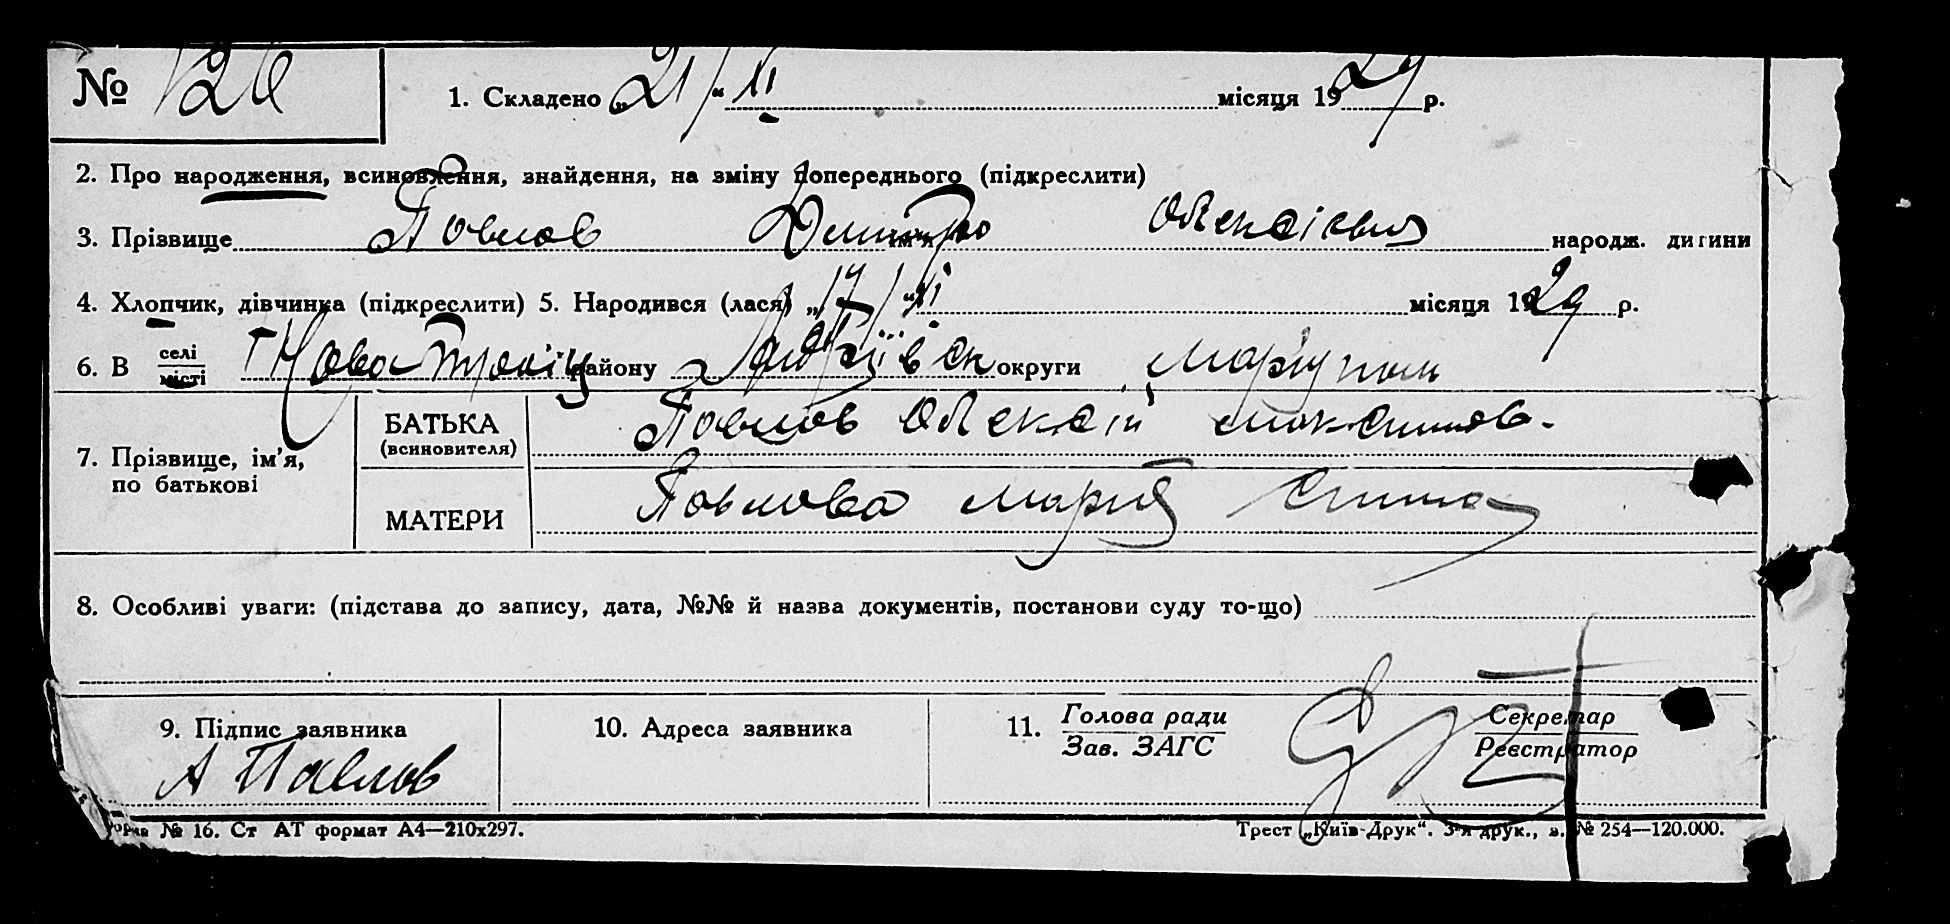 № 126
1. Складено „21/“ XI місяця 1929 р.
2. Про народження, всиновлення, знайдення, на зміну попереднього (підкреслити)
3. Прізвище Павлов Дмитро Олексієвич народж. дитини
4. Хлопчик, дівчинка (підкреслити) 5. Народився (лася) „17/“ XI місяця 1929 р.
6. В селі/місті району округи Маріупол
7. Прізвище, ім’я, по батькові
БАТЬКА (всиновителя) Павлов Олексій Максимов.
МАТЕРИ Павлова Марія
8. Особливі уваги: (підстава до запису, дата, №№ й назва документів, постанови суду то-що)
9. Підпис заявника 10. Адреса заявника 11. Голова ради/Зав. ЗАГС Секретар/Реєстратор
А Павлов
Форма № 16. Ст АТ формат А4—210х297. Трест „Київ-Друк“. 3-я друк., з. № 254—120.000.